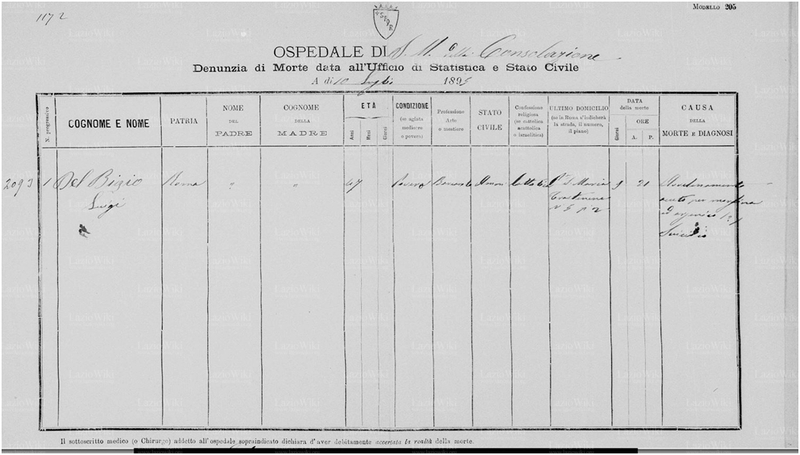 1172
MODELLO 205
OSPEDALE DI S. M. della Consolazione
Denunzia di Morte data all'Ufficio di Statistica e Stato Civile
A dì 10 Luglio 1895
N. progressivo
COGNOME E NOME
PATRIA
NOME
DEL
PADRE
COGNOME
DELLA
MADRE
ETÀ
Anni
Mesi
Giorni
CONDIZIONE
(se agiata
mediocre
o povera)
Professione
Arte
o mestiere
STATO
CIVILE
Confessione
religiosa
(se cattolica
acattolica
o israelitica)
ULTIMO DOMICILIO
(se in Roma s'indicherà
la strada, il numero,
il piano)
DATA
della morte
Giorni
ORE
A.
P.
CAUSA
DELLA
MORTE E DIAGNOSI
2093
1
Del Bizio
Luigi
Roma
"
"
47
Povera
9
21
Avvelenamento
acuto per morfina
Suicidio
Il sottoscritto medico (o Chirurgo) addetto all'ospedale sopraindicato dichiara d'aver debitamente accertata la realtà della morte.
LazioWiki